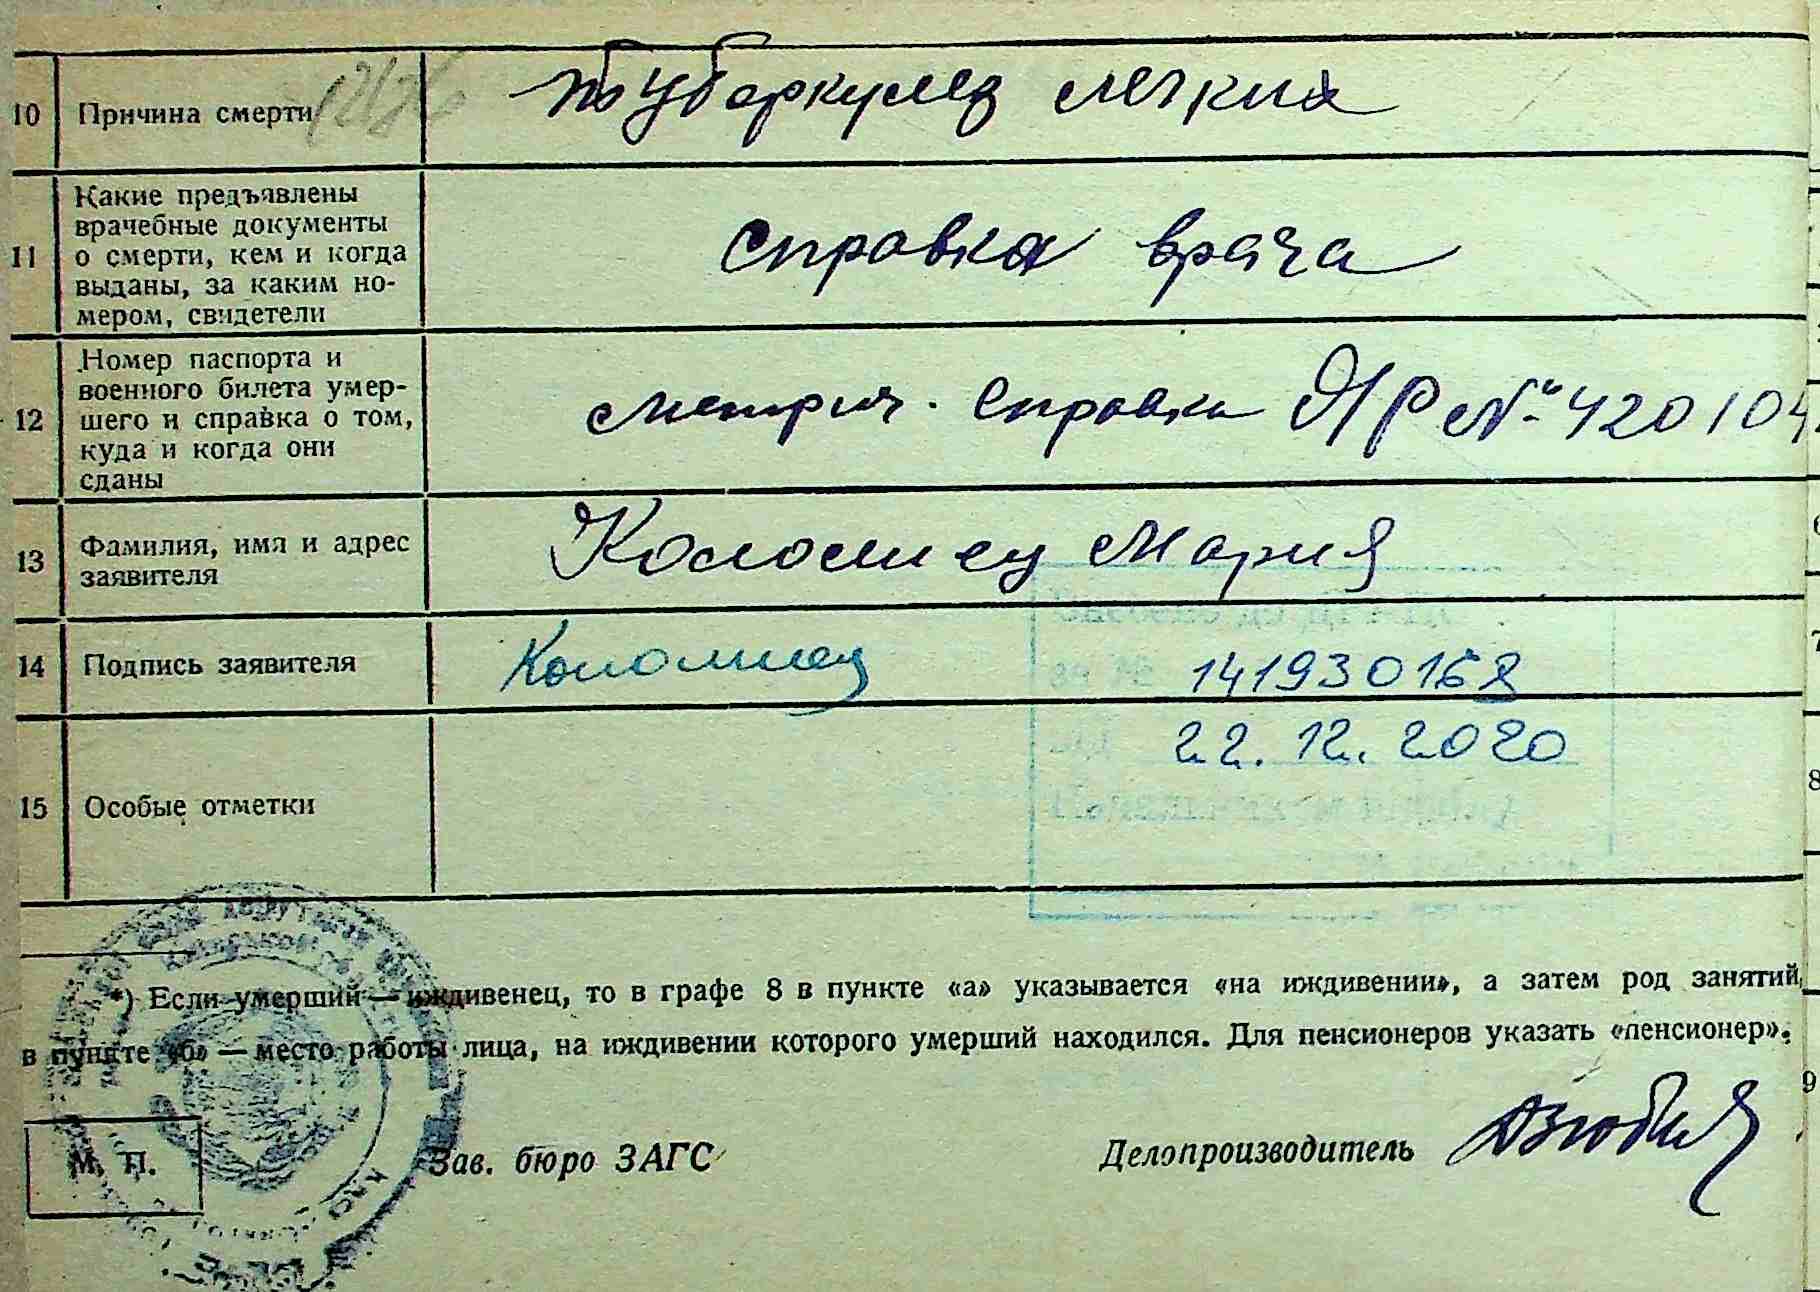 10 Причина смерти Туберкулез легких
11 Какие предъявлены
врачебные документы
о смерти, кем и когда
выданы, за каким но-
мером, свидетели
справка врача
12 Номер паспорта и
военного билета умер-
шего и справка о том,
куда и когда они
сданы
метрич. справка ЯР № 420104
13 Фамилия, имя и адрес
заявителя
Коломиец Мария
14 Подпись заявителя Коломиец 141930168
22.12.2020
15 Особые отметки
*) Если умерший — иждивенец, то в графе 8 в пункте «а» указывается «на иждивении», а затем род занятий,
в пункте «б» — место работы лица, на иждивении которого умерший находился. Для пенсионеров указать «пенсионер».
М. П. Зав. бюро ЗАГС Делопроизводитель